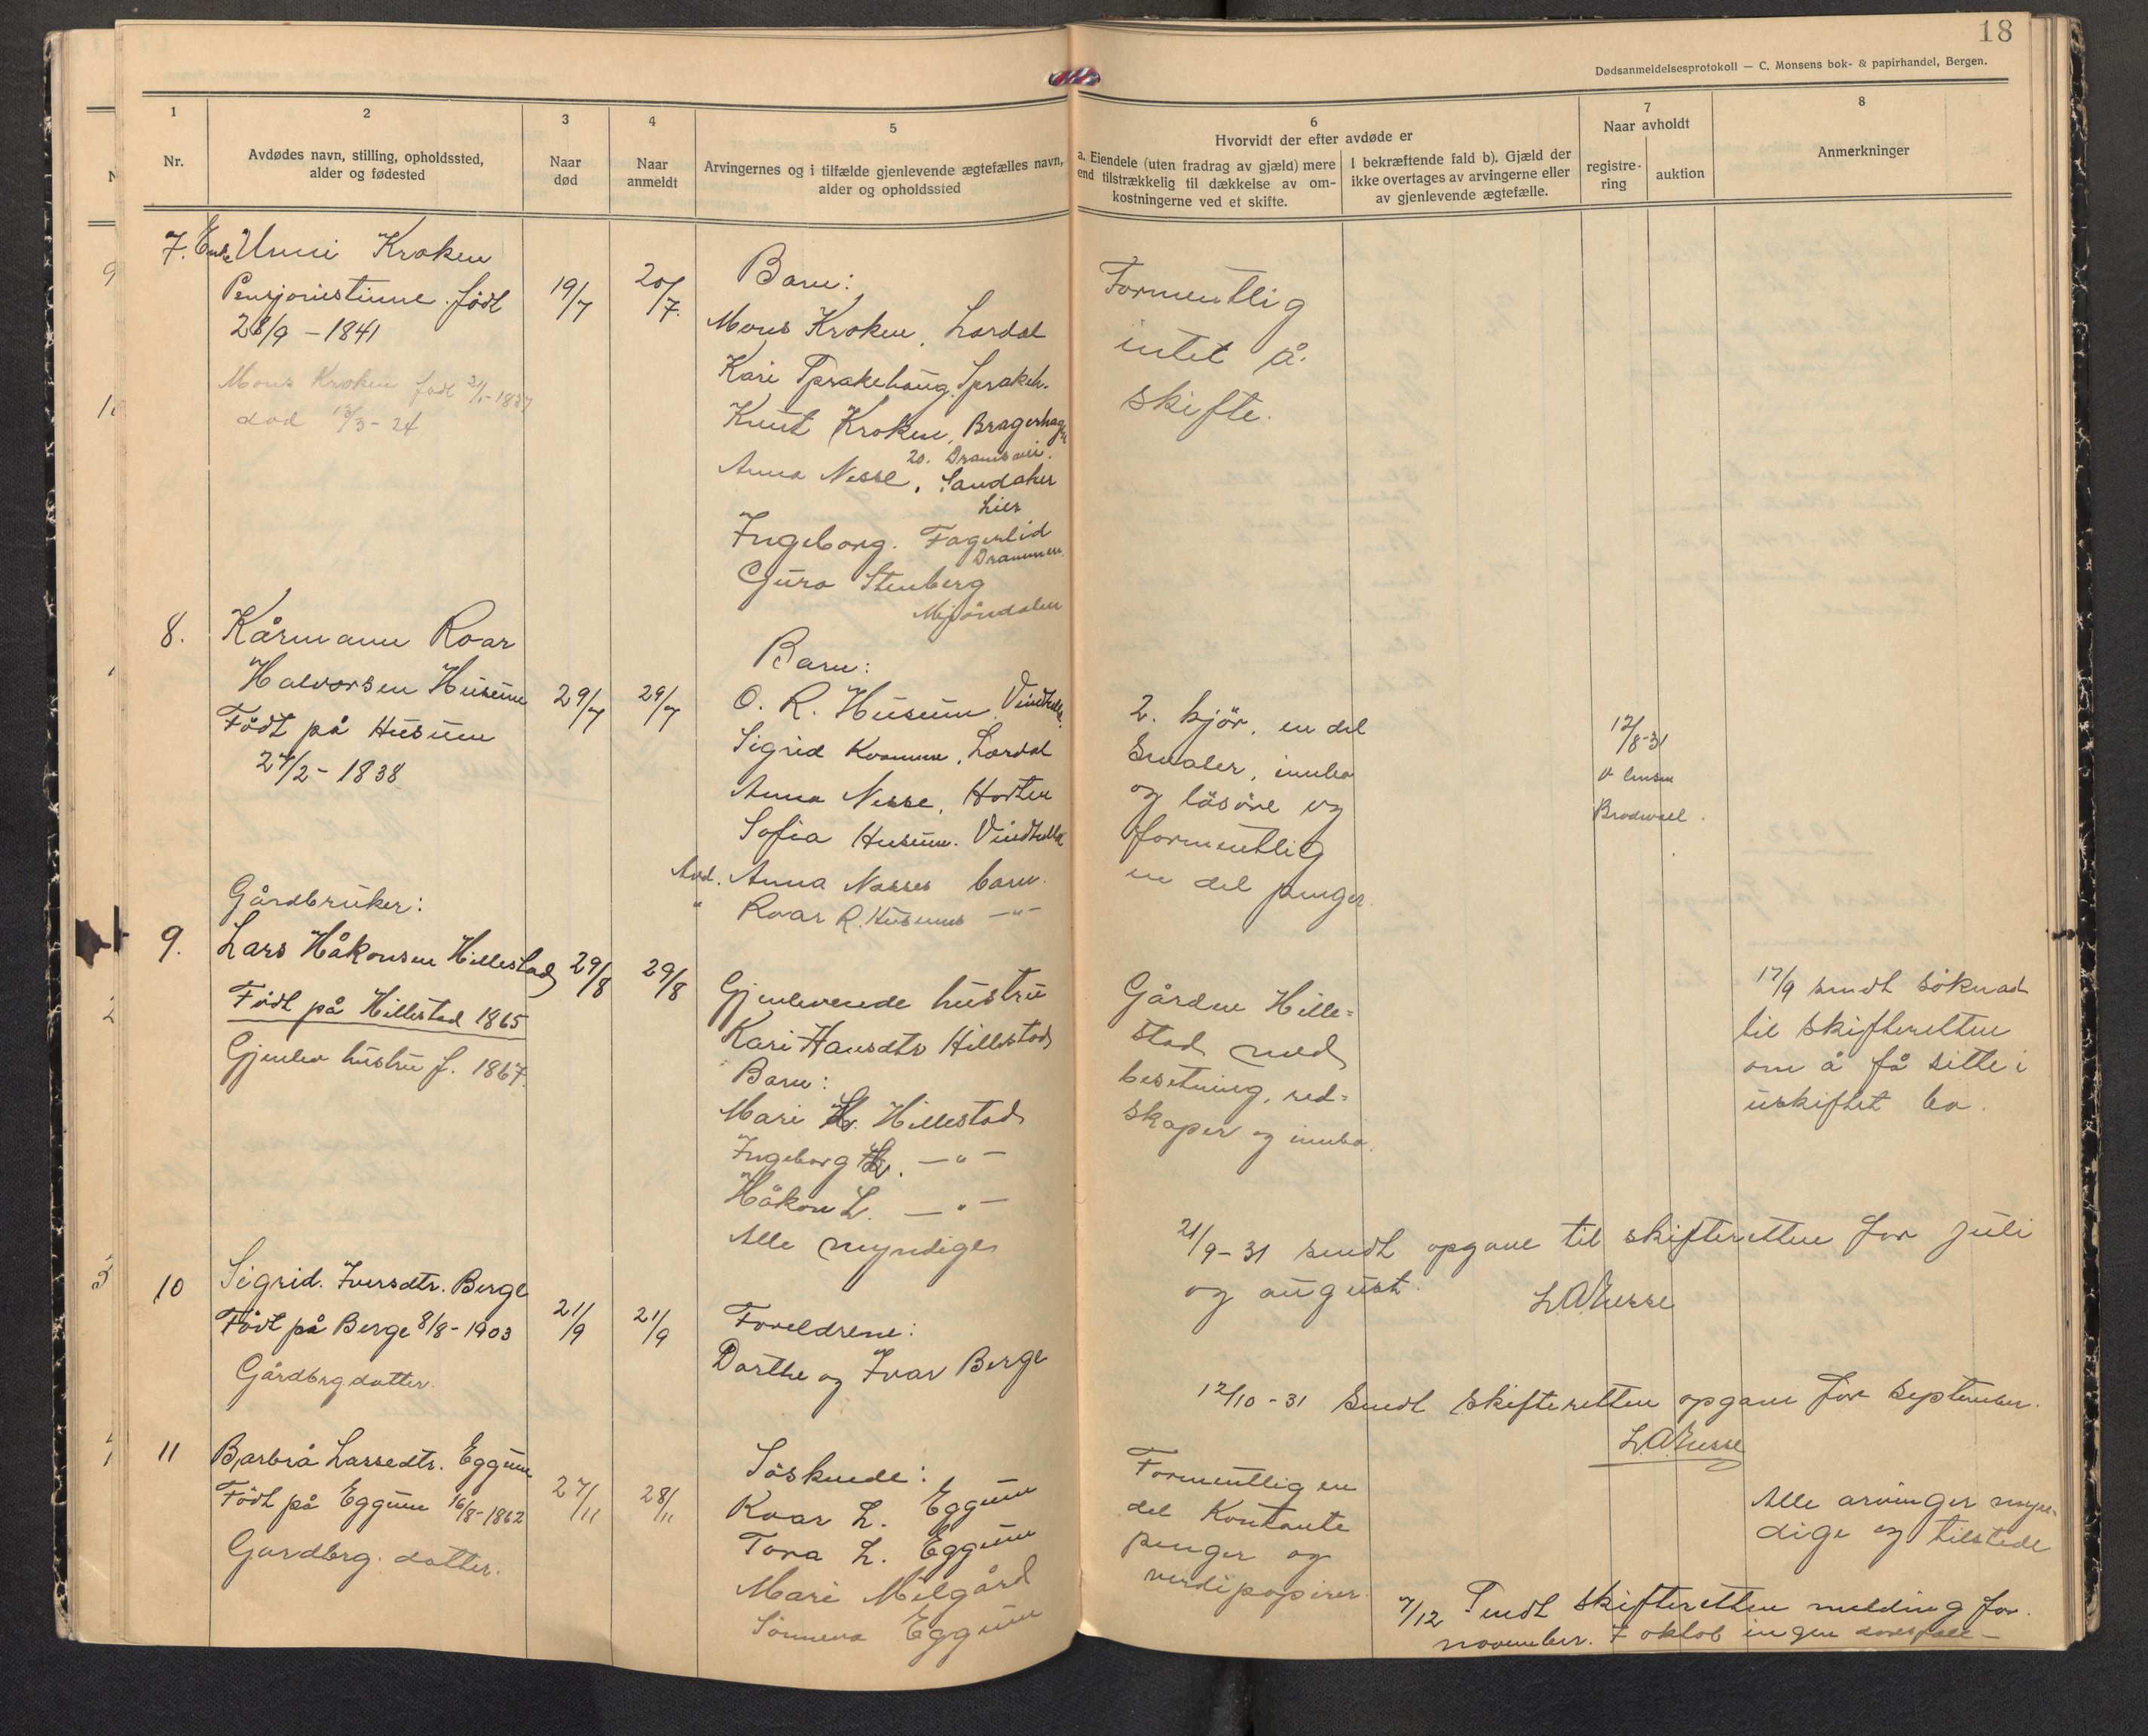 18
Dødsanmeldelsesprotokoll — C. Monsens bok- & papirhandel, Bergen.
1
Nr.
2
Avdødes navn, stilling, opholdssted,
alder og fødested
3
Naar
død
4
Naar
anmeldt
5
Arvingernes og i tilfælde gjenlevende ægtefælles navn,
alder og opholdssted
6
Hvorvidt der efter avdøde er
a. Eiendele (uten fradrag av gjæld) mere
end tilstrækkelig til dækkelse av om-
kostningerne ved et skifte.
I bekræftende fald b). Gjæld der
ikke overtages av arvingerne eller
av gjenlevende ægtefælle.
7
Naar avholdt
registre-
ring
auktion
8
Anmerkninger
7. Enke Unni Kroken
Pensjonistinne. født
28/9 - 1841
Mons Kroken født 21/1-1837
død 13/3-24
19/7
20/7.
Barn:
Mons Kroken, Lærdal
Kari Sprakehaug, Sprakeh.
Knut Kroken, Bragerhagen
20. Drammen.
Anna Nesse, Sandaker
Lier
Ingeborg. Fagerlid
Drammen.
Guro Stenberg
Mjøndalen
Formentlig
intet å
skifte.
8.
Kårmann Roar
Halvorsen Husum
Født på Husum
24/2 - 1838
29/7
29/7
Barn:
O. R. Husum, Vindhella.
Sigrid Kvamme, Lærdal
Anna Nesse, Horten
Sofia Husum. Vindhella
Avd. Anna Nesses barn.
" Roar R. Husums —"—
2. kjør, en del
Smaler, innbo
og løsøre og
formentlig
en del penger
12/8-31
Gårdbruker:
9.
Lars Håkonsen Hillestad
Født på Hillestad 1865
Gjenlev hustru f. 1867.
29/8
29/8
Gjenlevende hustru
Kari Hansdtr Hillestad
Barn:
Mari L. Hillestad
Ingeborg L. —"—
Håkon L. —"—
Alle myndige
Gården Hille=
stad med
besetning, red=
skaper og innbo.
17/9 sendt søknad
til skifteretten
om å få sitte i
uskiftet bo.
21/9-31 sendt opgave til skifteretten for juli
og august.
L.A.Nesse
10
Sigrid. Iversdtr. Berge
Født på Berge 8/8-1903
Gårdbrg.datter.
21/9
21/9
Foreldrene:
Dorthe og Ivar Berge
12/10-31 Sendt skifteretten opgave for september.
L.A.Nesse
11
Barbra Larsedtr. Eggum
Født på Eggum 16/8-1862
Gardbrg. datter.
27/11
28/11
Søskende:
Roar L. Eggum
Tora L. Eggum
Mari Mælgård
Sønneva Eggum
Formentlig en
del Kontante
penger og
verdipapirer.
Alle arvinger myn-
dige og tilstede
7/12 Sendt skifteretten melding for
november. I oktob ingen dødsfall—